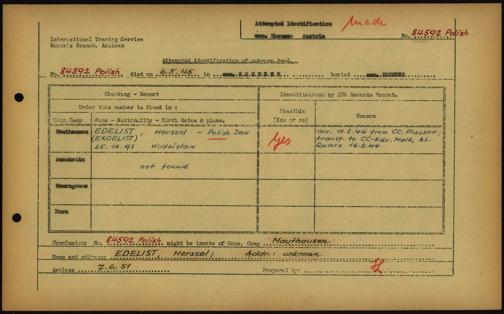 Attempted Identification made
com. Ebensee Austria
International Tracing Service
Records Branch, Arolsen
No. 84592 Polish
Attempted identification of unknown dead.
No. 84592 Polish died on 6.5.45 in buried
Checking - Report
Identification by ITS Records Branch.
Under this number is found in :
Possible (Yes or no)
Reason
Conc. Camp Name - Nationality - Birth dates & place.
Mauthausen EDELIST, Herszel - Polish Jew
(EKDELIST)
25. 12. 93 Wodzislaw
Yes
arr. 10.8.44 from CC. Plaszow,
transf. to CC-Kdo. Melk, AL.
Quarz 16.8.44
Auschwitz
not found
Dora
Conclusion: No. 84592 Polish might be inmate of Conc. Camp Mauthausen
Name and address: EDELIST Herszel; Addr.: unknown
Arolsen 7.6.51 Prepared by: